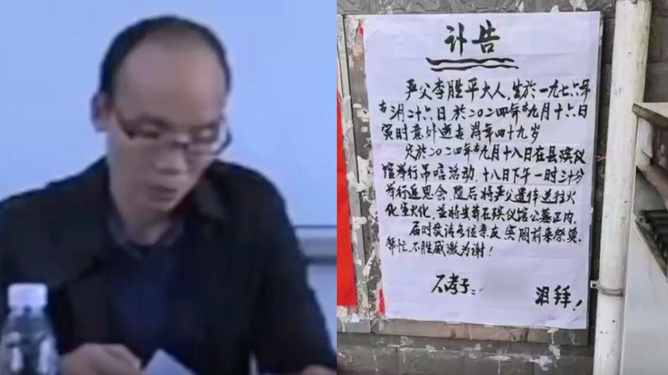 讣告
严父李胜平大人,生於一九七六年
古3月二十六日於二0二四年古九月十六日
寅时意外逝去 得年四十九岁
定於二0二四年古九月十八日在县殡仪
馆举行吊唁活动,十八日下午一时三十分
举行追思会,随后将严父遗体送往火
化室火化,並将安葬在殡仪馆公墓区内,
届时敬请各位亲友 实期前来祭奠
帮忙,不胜感激为谢!
不孝子: 泪拜!